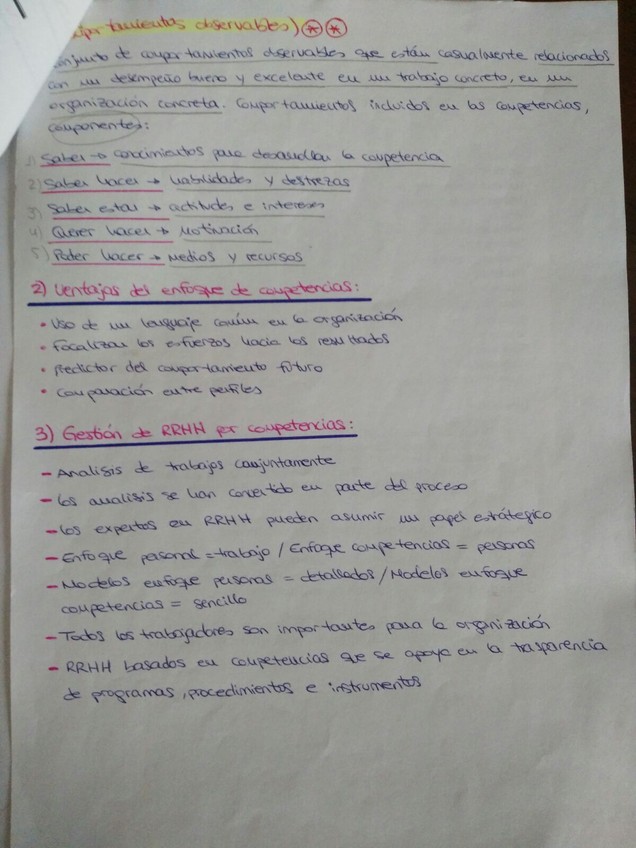 comportamientos observables)
conjunto de comportamientos observables que están casualmente relacionados
con un desempeño bueno y excelente en un trabajo concreto, en un
organización concreta. Comportamientos incluidos en las competencias,
componentes:
1) Saber → conocimientos para desarrollar la competencia
2) Saber hacer → habilidades y destrezas
3) Saber estar → actitudes e intereses
4) Querer hacer → motivación
5) Poder hacer → medios y recursos
2) Ventajas del enfoque de competencias:
• Uso de un lenguaje común en la organización
• Focalizar los esfuerzos hacia los resultados
• Predictor del comportamiento futuro
• Comparación entre perfiles
3) Gestión de RRHH por competencias:
- Analisis de trabajos conjuntamente
- Los analisis se han convertido en parte del proceso
- Los expertos en RRHH pueden asumir un papel estrátegico
- Enfoque personal = trabajo / Enfoque competencias = personas
- Modelos enfoque personas = detallados / Modelos enfoque
competencias = sencillo
- Todos los trabajadores son importantes para la organización
- RRHH basados en competencias que se apoya en la trasparencia
de programas, procedimientos e instrumentos